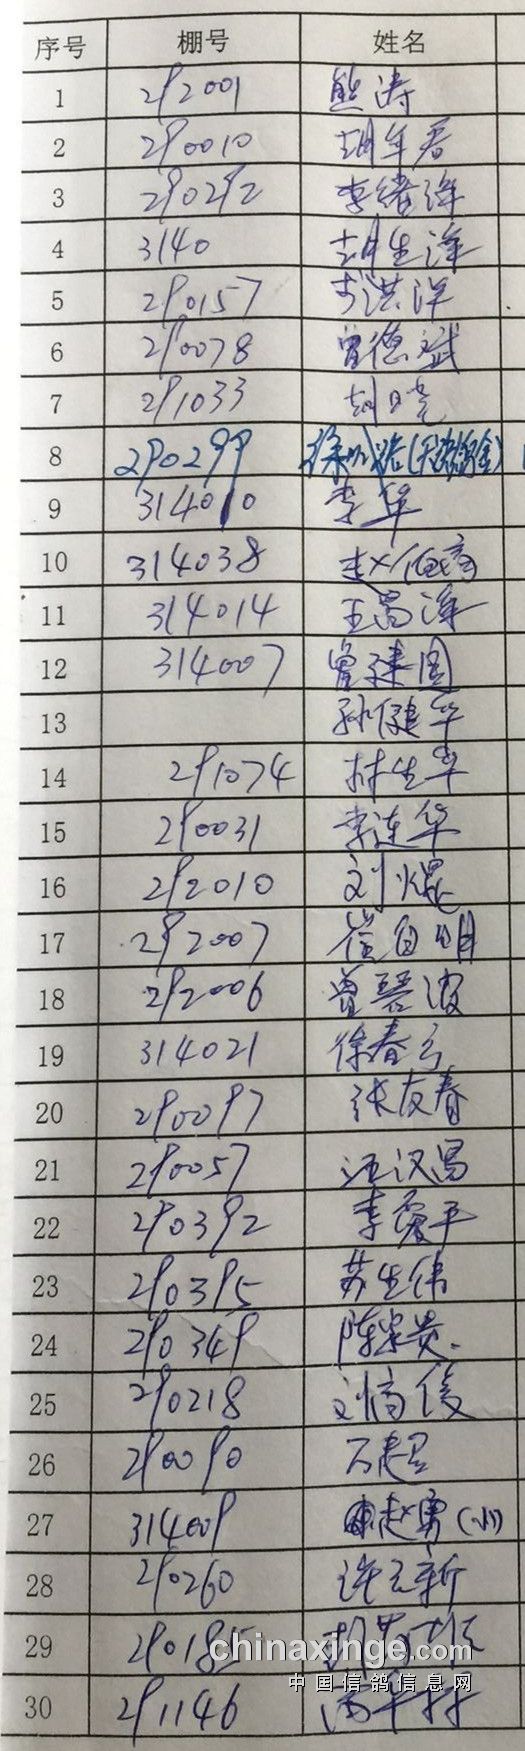 序号 棚号 姓名
1 292001 熊涛
2 290010 胡年春
3 290292 李绪洋
4 3140 胡生洋
5 290157 李洪洋
6 290078 曾德斌
7 291033 胡晓
8 290299
9 314010 李华
10 314038 赵伯
11 314014 王昌洋
12 314007 曾建国
13 孙健华
14 291074 林生华
15 290031 李连华
16 292010 刘焜
17 292007 崔自明
18 292006 曾碧波
19 314021 徐春云
20 290097 张友春
21 290057 汪汉昌
22 290392 李爱平
23 290395 苏生伟
24 290349 陈宗贵
25 290218 刘俊
26 290090 万超
27 314009 赵勇(小)
28 290260 许立新
29 290185
30 291146
chinaxinge.com
中国信鸽信息网